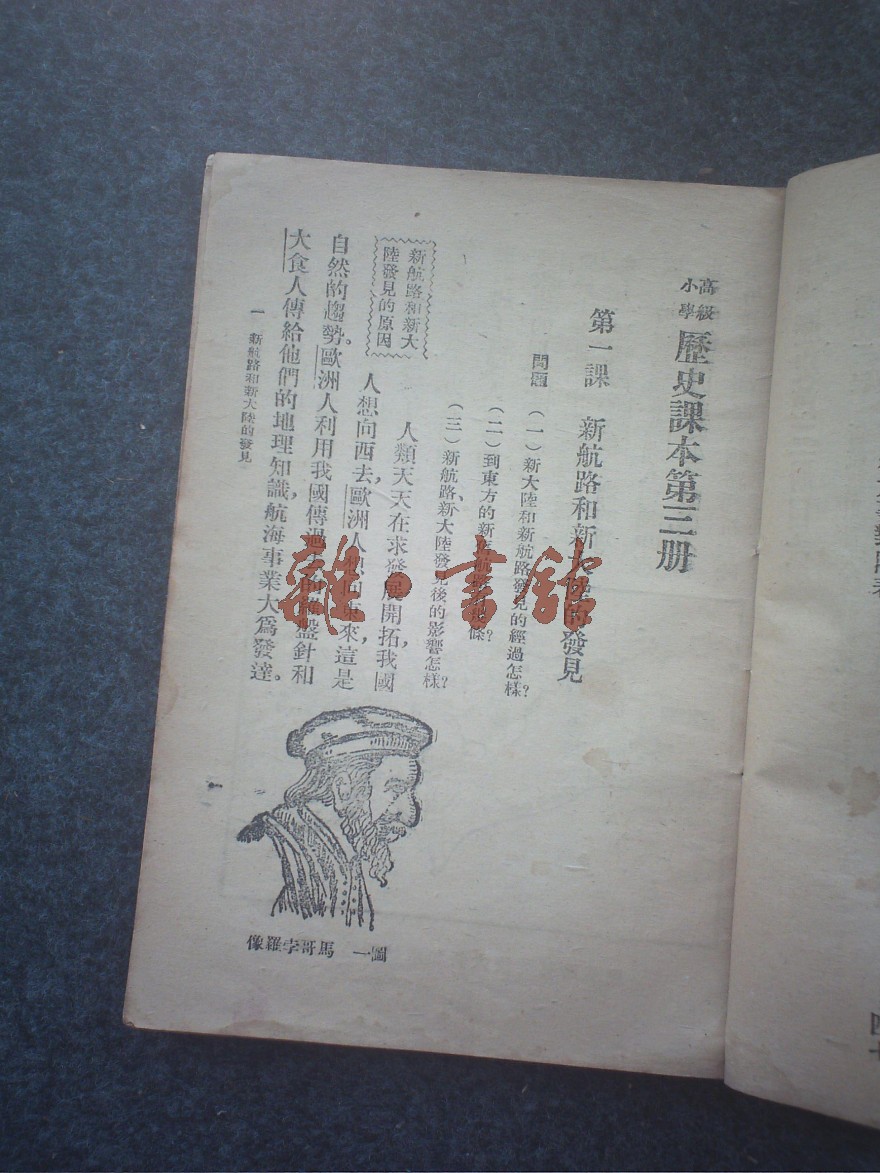 高級
小學
歷史課本第三册
第一課 新航路和新大陸的發見
問題
(一)新大陸和新航路發見的經過怎樣?
(二)到東方的新航路有幾條?
(三)新航路、新大陸發見後的影響怎樣?
新航路和新大
陸發見的原因
人類天天在求發展開拓,我國
人想向西去,歐洲人想向東來,這是
自然的趨勢。歐洲人利用我國傳過去的羅盤針和
大食人傳給他們的地理知識,航海事業大爲發達。
一 新航路和新大陸的發見
圖一 馬哥孛羅像
雜·書館